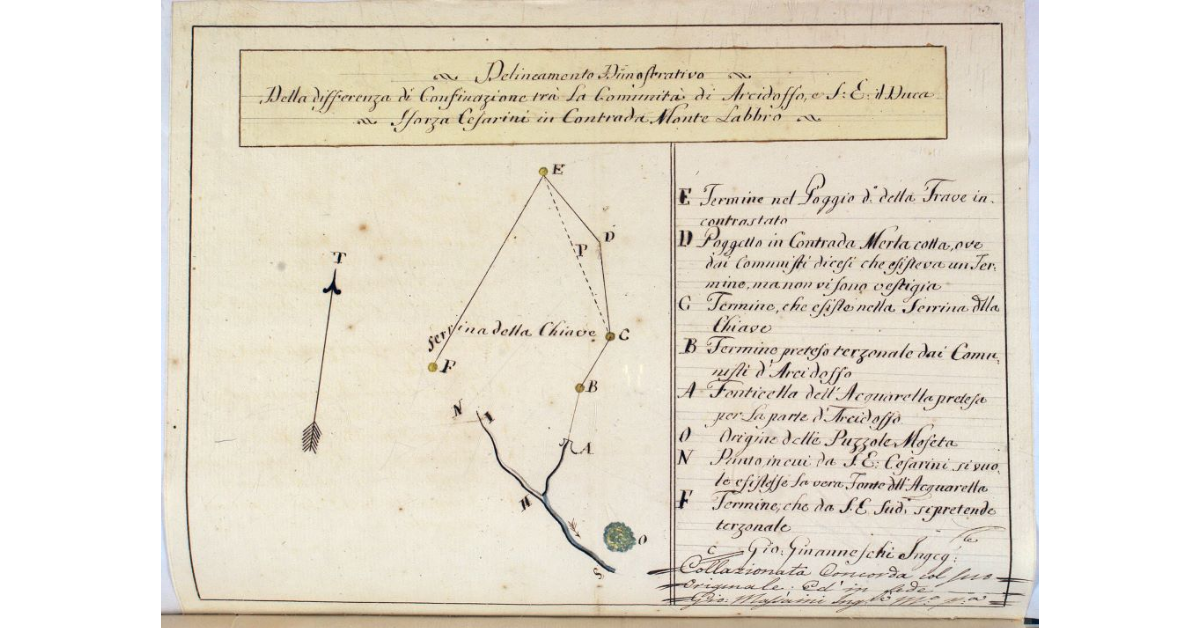 Delineamento Dimostrativo
Della differenza di Confinazione trà La Comunità di Arcidosso, e S: E: il Duca
Sforza Cesarini in Contrada Monte Labbro
E
D
P
T
Serrina della Chiave
C
F
B
N
I
A
M
O
S
E Termine nel Poggio d.º della Trave in-
contrastato
D Poggetto in Contrada Merla colla, ove
dai Comunisti dicesi che esisteva un Ter-
mine, ma non vi sono vestigia
C Termine, che esiste nella Serrina dlla
Chiave
B Termine preteso terzonale dai Comu-
nisti d'Arcidosso
A Fonticella dell'Acquarella pretesa
per la parte d'Arcidosso
O Origine delle Puzzole Moseta
N Punto, in cui da S. E: Cesarini si vuo-
le esistesse la vera Fonte dll'Acquarella
F Termine, che da S. E. Sud.ª si pretende
terzonale
Gio: Ginanneschi Ingeg:
Collazionata Concorda col suo
Originale ed in fede
Gio: